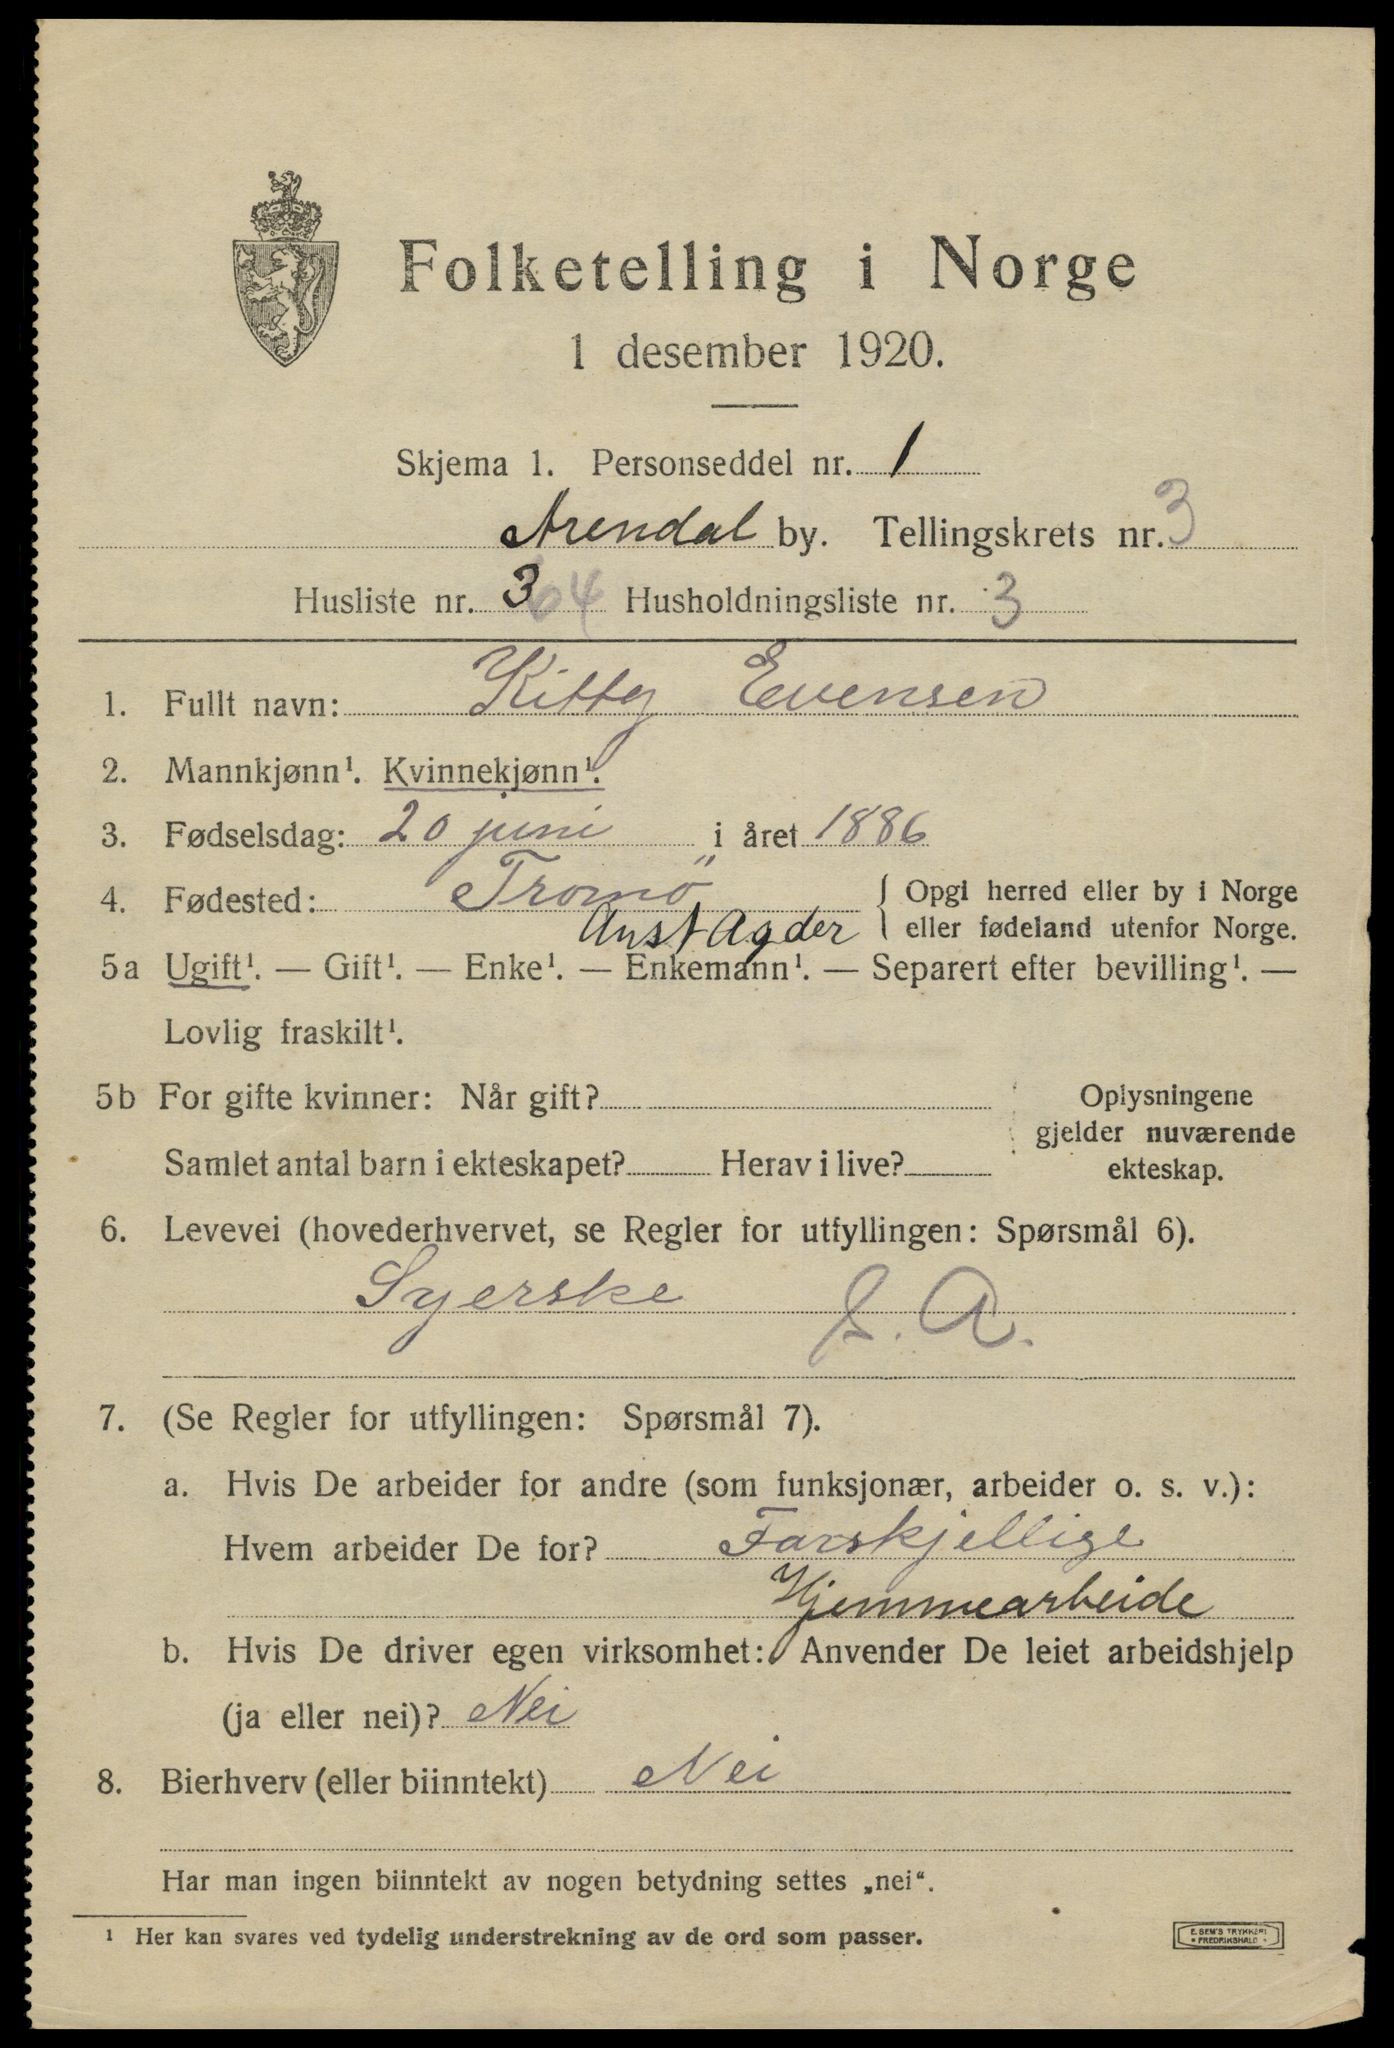 Folketelling i Norge
1 desember 1920.
Skjema 1. Personseddel nr. 1
Arendal by. Tellingskrets nr. 3
Husliste nr. 3 64 Husholdningsliste nr. 3
1. Fullt navn: Kitty Evensen
2. Mannkjønn¹. Kvinnekjønn¹.
3. Fødselsdag: 20 juni i året 1886
4. Fødested: Tromö { Opgi herred eller by i Norge
Aust Agder eller fødeland utenfor Norge.
5a Ugift¹. — Gift¹. — Enke¹. — Enkemann¹. — Separert efter bevilling¹. —
Lovlig fraskilt¹.
5b For gifte kvinner: Når gift? Oplysningene
gjelder nuværende
Samlet antal barn i ekteskapet? Herav i live? ekteskap.
6. Levevei (hovederhvervet, se Regler for utfyllingen: Spørsmål 6).
Syerske S. A.
7. (Se Regler for utfyllingen: Spørsmål 7).
a. Hvis De arbeider for andre (som funksjonær, arbeider o. s. v.):
Hvem arbeider De for? Forskjellige
Hjemmearbeide
b. Hvis De driver egen virksomhet: Anvender De leiet arbeidshjelp
(ja eller nei)? Nei
8. Bierhverv (eller biinntekt) Nei
Har man ingen biinntekt av nogen betydning settes „nei“.
¹ Her kan svares ved tydelig understrekning av de ord som passer.
E. SEM'S TRYKKERI
• FREDRIKSHALD •